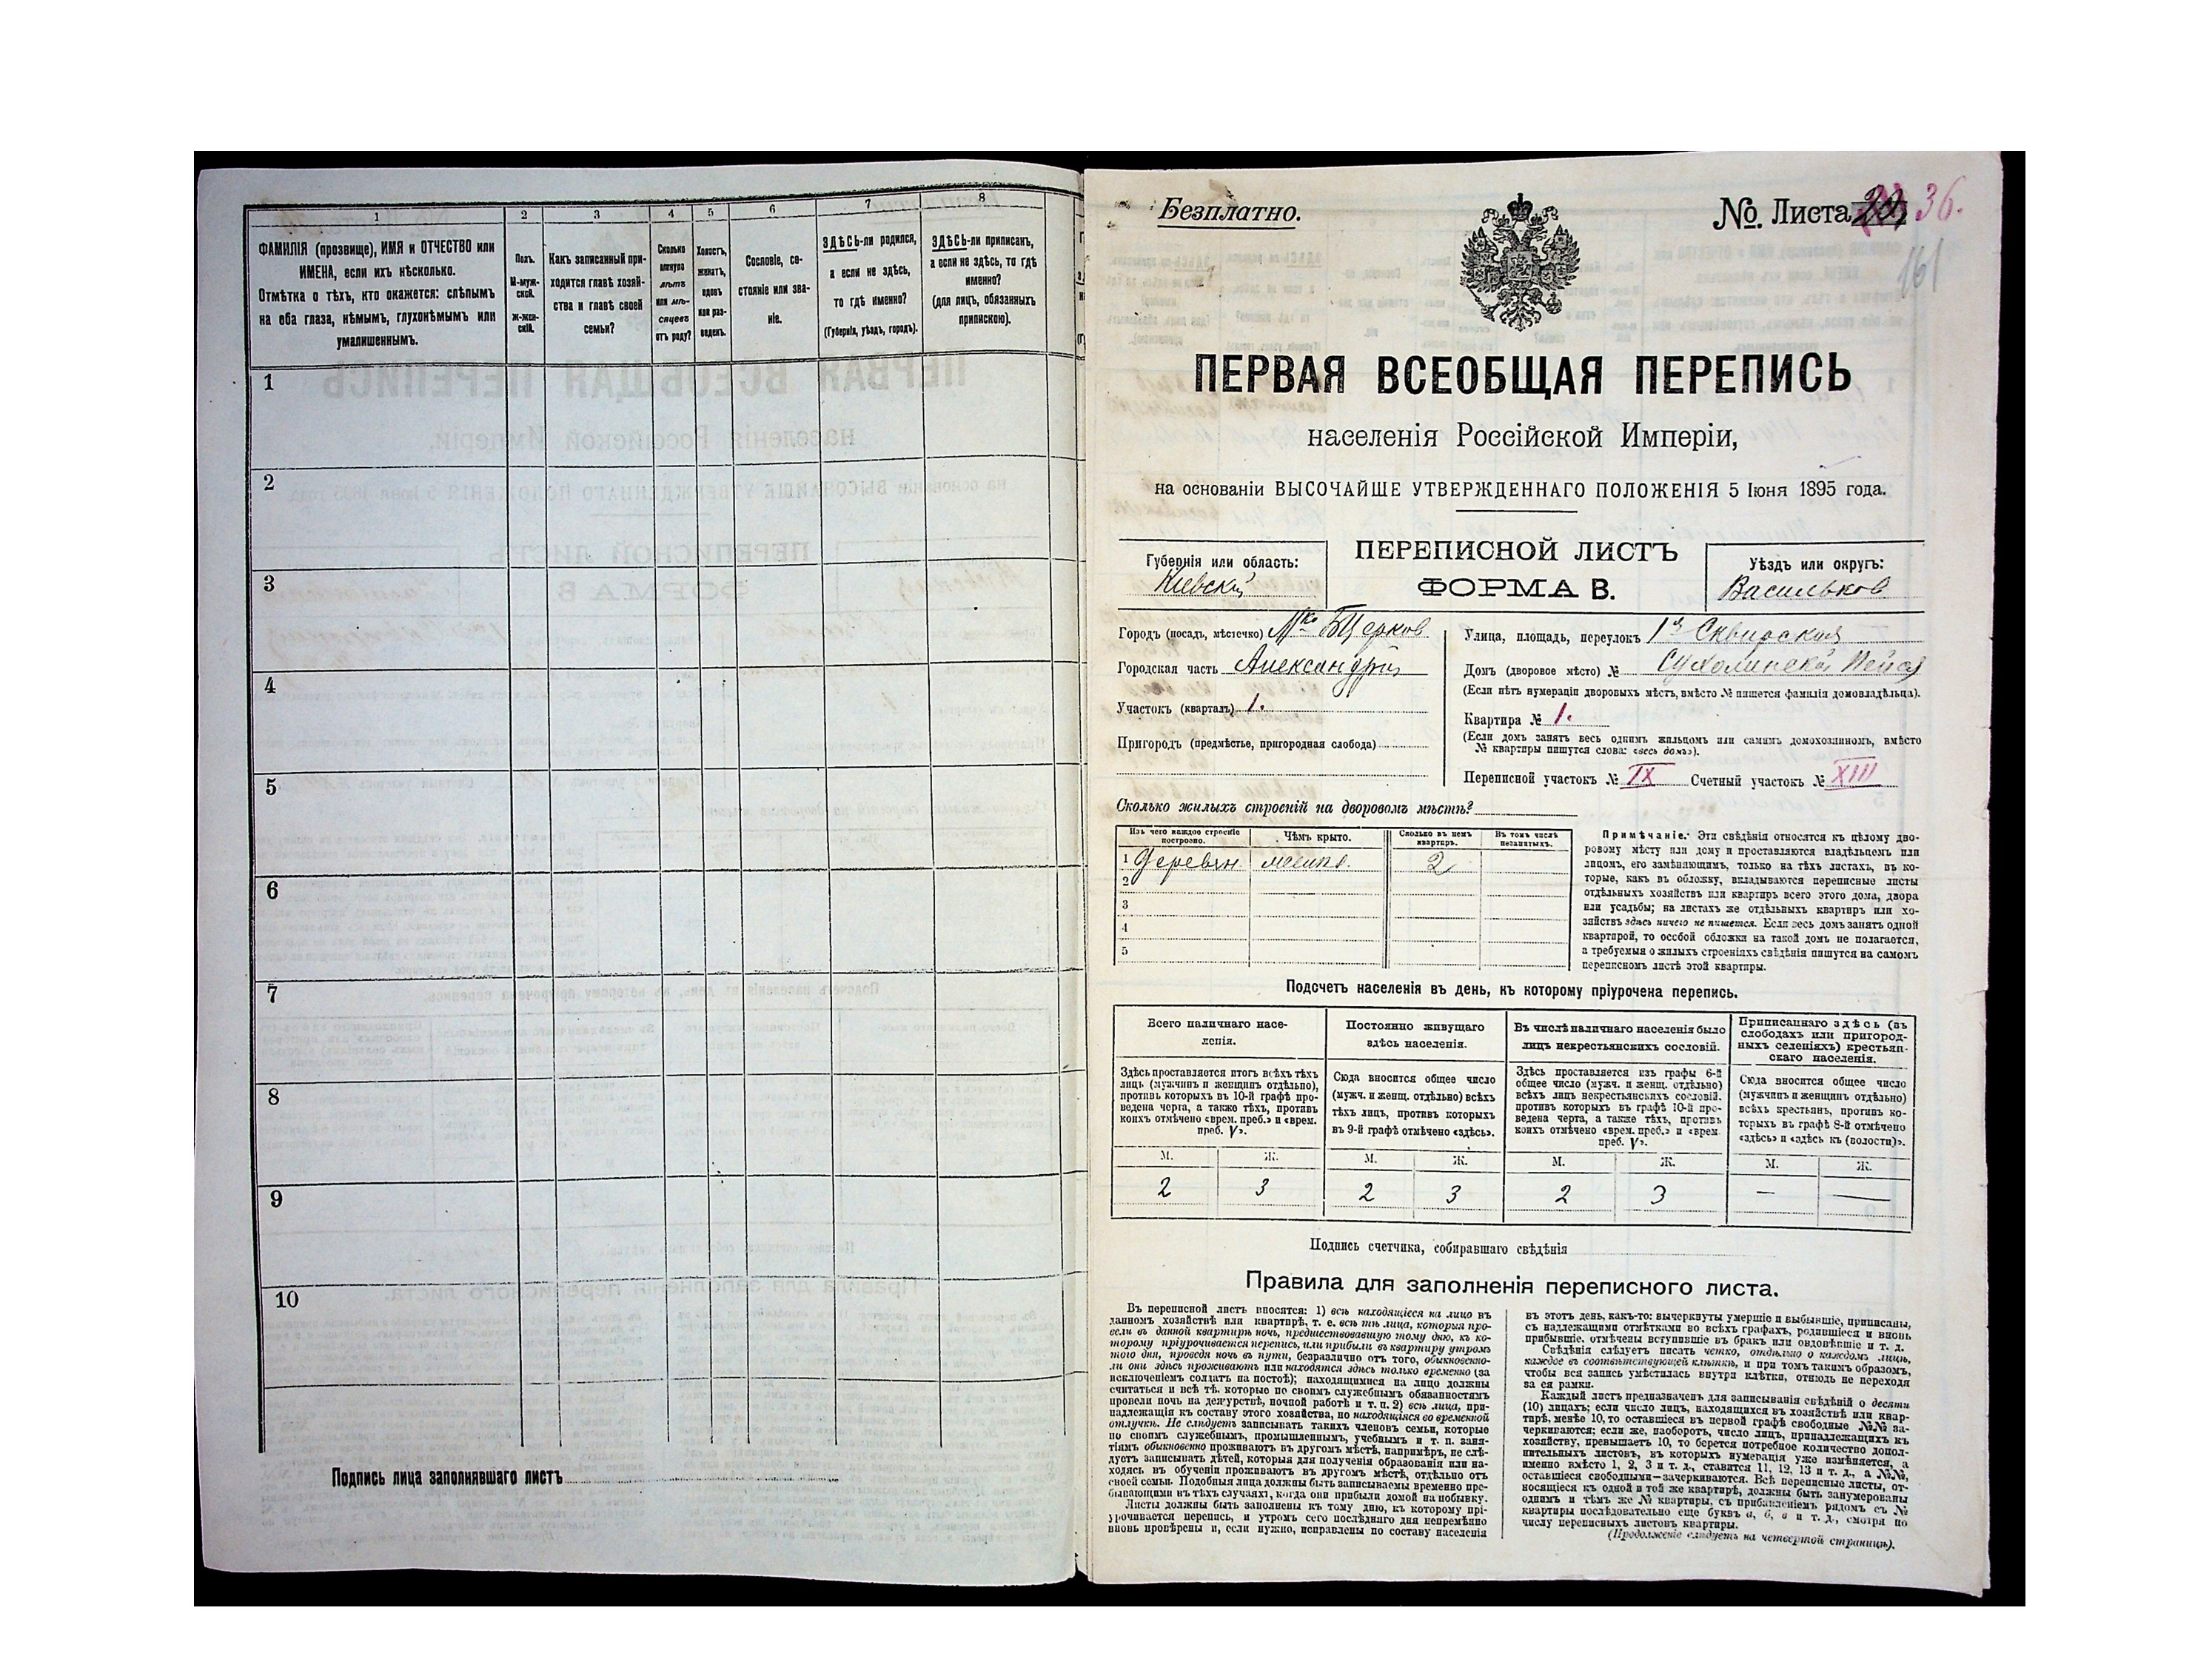 1 2 3 4 5 6 7 8
ФАМИЛІЯ (прозвище), ИМЯ и ОТЧЕСТВО или
ИМЕНА, если ихъ нѣсколько.
Отмѣтка о тѣхъ, кто окажется: слѣпымъ
на оба глаза, нѣмымъ, глухонѣмымъ или
умалишеннымъ.
Полъ.
М-муж-
ской.
ж-жен-
скій.
Какъ записанный при-
ходится главѣ хозяй-
ства и главѣ своей
семьи?
Сколько
минуло
лѣтъ
или мѣ-
сяцевъ
отъ роду?
Холостъ,
женатъ,
вдовъ
или раз-
веденъ.
Сословіе, со-
стояніе или зва-
ніе.
ЗДѢСЬ-ли родился,
а если не здѣсь,
то гдѣ именно?
(Губернія, уѣздъ, городъ).
ЗДѢСЬ-ли приписанъ,
а если не здѣсь, то гдѣ
именно?
(для лицъ, обязанныхъ
припискою).
1
2
3
4
5
6
7
8
9
10
Подпись лица заполнявшаго листъ
Безплатно.
№. Листа 36.
161
ПЕРВАЯ ВСЕОБЩАЯ ПЕРЕПИСЬ
населенія Россійской Имперіи,
на основаніи ВЫСОЧАЙШЕ УТВЕРЖДЕННАГО ПОЛОЖЕНІЯ 5 Іюня 1895 года.
Губернія или область:
Кіевскій
ПЕРЕПИСНОЙ ЛИСТЪ
ФОРМА В.
Уѣздъ или округъ:
Васильков
Городъ (посадъ, мѣстечко) Мко БЦерков
Городская часть Александрія
Участокъ (кварталъ) 1.
Пригородъ (предмѣстье, пригородная слобода)
Улица, площадь, переулокъ 1я Сквирская
Домъ (дворовое мѣсто) №
(Если нѣтъ нумераціи дворовыхъ мѣстъ, вмѣсто № пишется фамилія домовладѣльца).
Квартира № 1.
(Если домъ занятъ весь однимъ жильцомъ или самимъ домохозяиномъ, вмѣсто
№ квартиры пишутся слова: «весь домъ»).
Переписной участокъ № IX Счетный участокъ № XIII
Сколько жилыхъ строеній на дворовомъ мѣстѣ?
Изъ чего каждое строеніе
построено.
Чѣмъ крыто.
Сколько въ немъ
квартиръ.
Въ томъ числѣ
незанятыхъ.
1 Деревян. 2
2
3
4
5
Примѣчаніе. Эти свѣдѣнія относятся къ цѣлому дво-
ровому мѣсту или дому и проставляются владѣльцемъ или
лицомъ, его замѣняющимъ, только на тѣхъ листахъ, въ ко-
торые, какъ въ обложку, вкладываются переписные листы
отдѣльныхъ хозяйствъ или квартиръ всего этого дома, двора
или усадьбы; на листахъ же отдѣльныхъ квартиръ или хо-
зяйствъ здѣсь ничего не пишется. Если весь домъ занятъ одной
квартирой, то особой обложки на такой домъ не полагается,
а требуемыя о жилыхъ строеніяхъ свѣдѣнія пишутся на самомъ
переписномъ листѣ этой квартиры.
Подсчетъ населенія въ день, къ которому пріурочена перепись.
Всего наличнаго насе-
ленія.
Здѣсь проставляется итогъ всѣхъ тѣхъ
лицъ (мужчинъ и женщинъ отдѣльно),
противъ которыхъ въ 10-й графѣ про-
ведена черта, а также тѣхъ, противъ
коихъ отмѣчено «врем. преб.» и «врем.
преб. V».
Постоянно живущаго
здѣсь населенія.
Сюда вносится общее число
(мужч. и женщ. отдѣльно) всѣхъ
тѣхъ лицъ, противъ которыхъ
въ 9-й графѣ отмѣчено «здѣсь».
Въ числѣ наличнаго населенія было
лицъ некрестьянскихъ сословій.
Здѣсь проставляется изъ графы 6-й
общее число (мужч. и женщ. отдѣльно)
всѣхъ лицъ некрестьянскихъ сословій,
противъ которыхъ въ графѣ 10-й про-
ведена черта, а также тѣхъ, противъ
коихъ отмѣчено «врем. преб.» и «врем.
преб. V».
Приписаннаго здѣсь (въ
слободахъ или пригород-
ныхъ селеніяхъ) крестьян-
скаго населенія.
Сюда вносится общее число
(мужчинъ и женщинъ отдѣльно)
всѣхъ крестьянъ, противъ ко-
торыхъ въ графѣ 8-й отмѣчено
«здѣсь» и «здѣсь къ (волости)».
М. Ж. М. Ж. М. Ж. М. Ж.
2 3 2 3 2 3 — —
Подпись счетчика, собиравшаго свѣдѣнія
Правила для заполненія переписного листа.
Въ переписной листъ вносятся: 1) всѣ находящіеся на лицо въ
данномъ хозяйствѣ или квартирѣ, т. е. всѣ тѣ лица, которыя про-
вели въ данной квартирѣ ночь, предшествовавшую тому дню, къ ко-
торому пріурочивается перепись, или прибыли въ квартиру утромъ
того дня, проведя ночь въ пути, безразлично отъ того, обыкновенно-
ли они здѣсь проживаютъ или находятся здѣсь только временно (за
исключеніемъ солдатъ на постоѣ); находящимися на лицо должны
считаться и всѣ тѣ, которые по своимъ служебнымъ обязанностямъ
провели ночь на дежурствѣ, ночной работѣ и т. п. 2) всѣ лица, при-
надлежащія къ составу этого хозяйства, но находящіяся во временной
отлучкѣ. Не слѣдуетъ записывать такихъ членовъ семьи, которые
по своимъ служебнымъ, промышленнымъ, учебнымъ и т. п. заня-
тіямъ обыкновенно проживаютъ въ другомъ мѣстѣ, напримѣръ, не слѣ-
дуетъ записывать дѣтей, которыя для полученія образованія или на-
ходясь въ обученіи проживаютъ въ другомъ мѣстѣ, отдѣльно отъ
своей семьи. Подобныя лица должны быть записываемы временно пре-
бывающими въ тѣхъ случаяхъ, когда они прибыли домой на побывку.
Листы должны быть заполнены къ тому дню, къ которому прі-
урочивается перепись, и утромъ сего послѣдняго дня непремѣнно
вновь провѣрены и, если нужно, исправлены по составу населенія
въ этотъ день, какъ-то: вычеркнуты умершіе и выбывшіе, приписаны,
съ надлежащими отмѣтками во всѣхъ графахъ, родившіеся и вновь
прибывшіе, отмѣчены вступившіе въ бракъ или овдовѣвшіе и т. д.
Свѣдѣнія слѣдуетъ писать четко, отдѣльно о каждомъ лицѣ,
каждое въ соотвѣтствующей клѣткѣ, и при томъ такимъ образомъ,
чтобы вся запись умѣстилась внутри клѣтки, отнюдь не переходя
за ея рамки.
Каждый листъ предназначенъ для записыванія свѣдѣній о десяти
(10) лицахъ; если число лицъ, находящихся въ хозяйствѣ или квар-
тирѣ, менѣе 10, то оставшіеся въ первой графѣ свободные №№ за-
черкиваются; если же, наоборотъ, число лицъ, принадлежащихъ къ
хозяйству, превышаетъ 10, то берется потребное количество допол-
нительныхъ листовъ, въ которыхъ нумерація уже измѣняется, а
именно вмѣсто 1, 2, 3 и т. д., ставится 11, 12, 13 и т. д., а №№,
оставшіеся свободными—зачеркиваются. Всѣ переписные листы, от-
носящіеся къ одной и той же квартирѣ, должны быть занумерованы
однимъ и тѣмъ же № квартиры, съ прибавленіемъ рядомъ съ №
квартиры послѣдовательно еще буквъ а, б, в и т. д., смотря по
числу переписныхъ листовъ квартиры.
(Продолженіе слѣдуетъ на четвертой страницѣ).